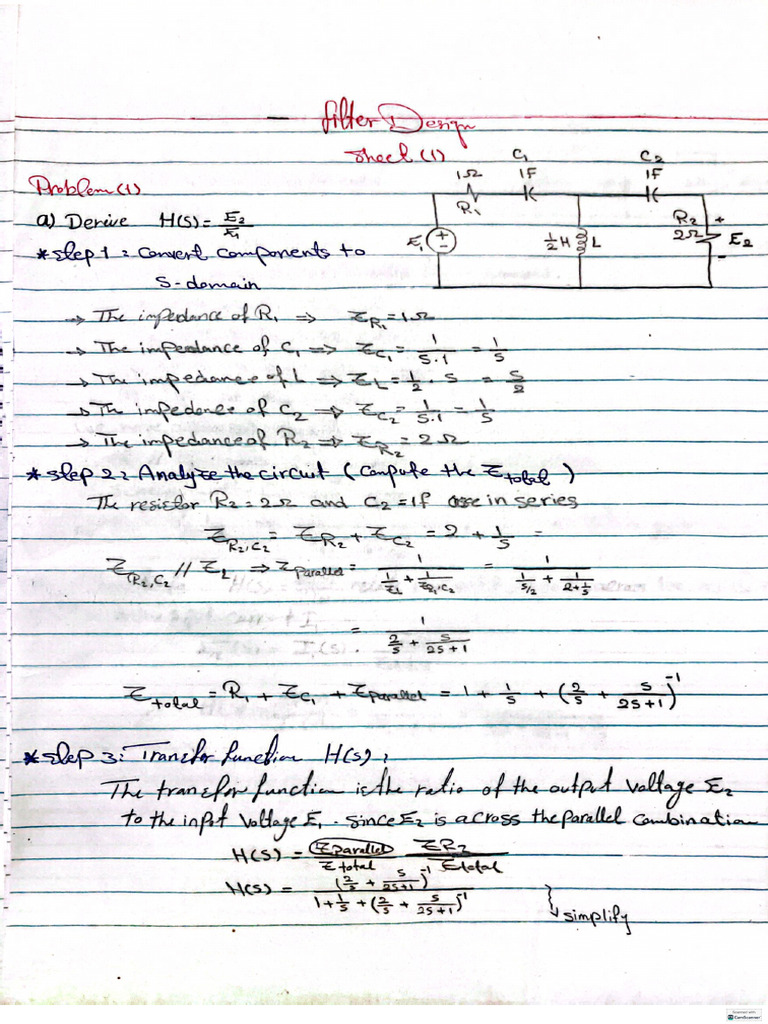 Filter Design
Sheet (1)
Problem (1)
a) Derive H(s) = E2/E1
1Ω R1
C1 1F
C2 1F
E1 + -
1/2 H L
R2 2Ω
+ E2 -
*step 1: Convert components to
S-domain
→ The impedance of R1 ⇒ ZR1 = 1Ω
→ The impedance of C1 ⇒ ZC1 = 1/(S·1) = 1/S
→ The impedance of L ⇒ ZL = 1/2 · S = S/2
→ The impedence of C2 ⇒ ZC2 = 1/(S·1) = 1/S
→ The impedance of R2 ⇒ ZR2 = 2Ω
*step 2: Analyze the circuit (Compute the Ztotal)
The resistor R2 = 2Ω and C2 = 1F are in series
ZR2,C2 = ZR2 + ZC2 = 2 + 1/S =
ZR2,C2 // ZL ⇒ ZParallel = 1/(1/ZL + 1/ZR2,C2) = 1/(1/(S/2) + 1/(2 + 1/S))
= 1/(2/S + S/(2S+1))
Ztotal = R1 + ZC1 + ZParallel = 1 + 1/S + (2/S + S/(2S+1))^-1
*step 3: Transfer function H(s):
The transfer function is the ratio of the output voltage E2
to the input Voltage E1. since E2 is across the parallel combination
H(S) = ZParallel/Ztotal ZR2/Ztotal
H(S) = (2/S + S/(2S+1))^-1 / (1 + 1/S + (2/S + S/(2S+1))^-1)
simplify
Scanned with
CamScanner